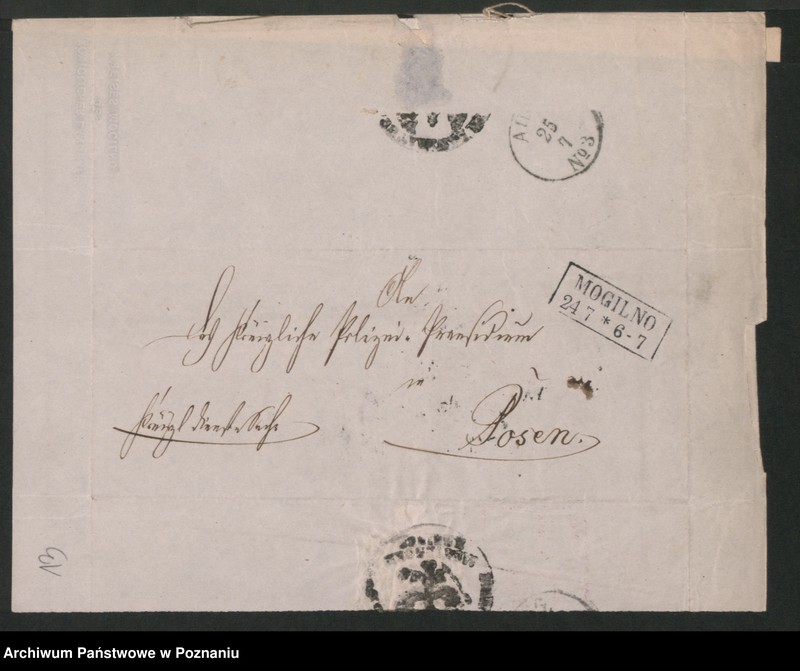 AU
25
7
No 3
MOGILNO
24 7 * 6-7
An
das Königliche Polizei-Praesidium
in
Posen.
Königl Dienst Sache
13
Archiwum Państwowe w Poznaniu